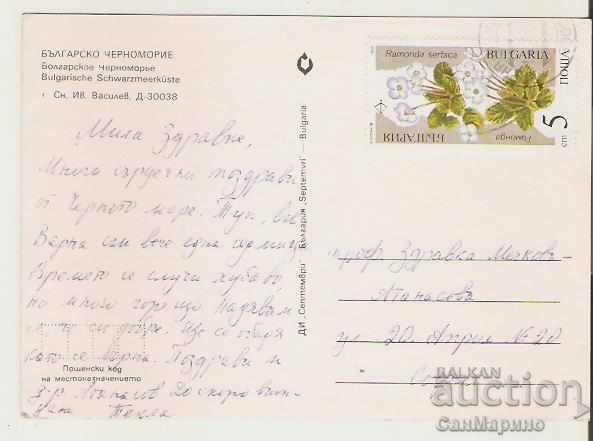 БЪЛГАРСКО ЧЕРНОМОРИЕ
Болгарское Черноморье
Bulgarische Schwarzmeerküste
Сн. Ив. Василев, Д-30038
Мила Здравке,
Много сърдечни поздрави
от Черното море. Тук, във
Варна съм вече една седмица
Времето се случи хубаво,
но много горещо. Надявам
си добре. Ще се обадя
като се върна. Поздрави и
д-р Атанасов До скоро виж-
дане Текла
Пощенски код
на местоназначението
ДИ „Септември" — България „Septemvri" — Bulgaria
Ramonda serbica
BULGARIA
ПОЩА
5
cm
БЪЛГАРИЯ
Рамонда
проф. Здравка
Атанасова
ул 20. Април № 20
BALKAN
auction
СанМарино